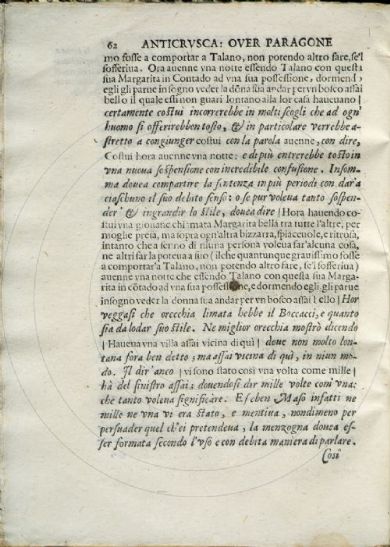 62 ANTICRVSCA: OVER PARAGONE
mo fosse a comportar a Talano, non potendo altro fare, se'l
sofferiua. Ora auenne vna notte essendo Talano con questa
sua Margarita in Contado ad vna sua possessione, dormendo
egli gli parue in sogno veder la dōna sua andar per vn bosco assai
bello il quale essi non guari lontano alla lor casa haueuano |
certamente costui incorrerebbe in molti scogli che ad ogn'
huomo si offerirebben tosto, & in particolare verrebbe a-
stretto a congiunger costui con la parola auenne, con dire,
Costui hora auenne vna notte: e di più entrerebbe tosto in
vna nuoua sospensione con incredibile confusione. Insom-
ma douea compartire la sentenza in più periodi con dar a
ciascheuno il suo debito senso: o se pur voleua tanto sospen-
der & ingrandir lo stile, douea dire | Hora hauendo co-
stui vna giouane chiamata Margarita bella tra tutte l'altre, per
moglie presa, ma sopra ogn'altra bizarra, spiaceuole, e ritrosa,
intanto che a senno di niuna persona voleua far'alcuna cosa,
ne altri far la poteua a suo (il che quantunque grauissimo fosse
a comportar'a Talano, non potendo altro fare, se'l sofferiua)
auenne vna notte che essendo Talano con questa sua Marga-
rita in cōtado ad vna sua possessione, e dormendo egli, gli parue
in sogno veder la donna sua andar per vn bosco assai bello | Hor
veggasi che orecchia limata hebbe il Boccacci, e quanto
sia da lodar suo stile. Ne miglior orecchia mostrò dicendo
| Haueua vna villa assai vicina di quì | doue non molto lon-
tana fora ben detto; ma assai vicina di quì, in niun mo-
do. Il dir'anco | vi sono stato così vna volta come mille |
hà del sinistro assai; douendosi dir mille volte com'vna:
che tanto voleua significare. E se ben Maso infatti ne
mille ne vna vi era stato, e mentiua, nondimeno per
persuader quel ch'ei pretendeua, la menzogna douea es-
ser formata secondo l'vso e con debita maniera di parlare.
Così